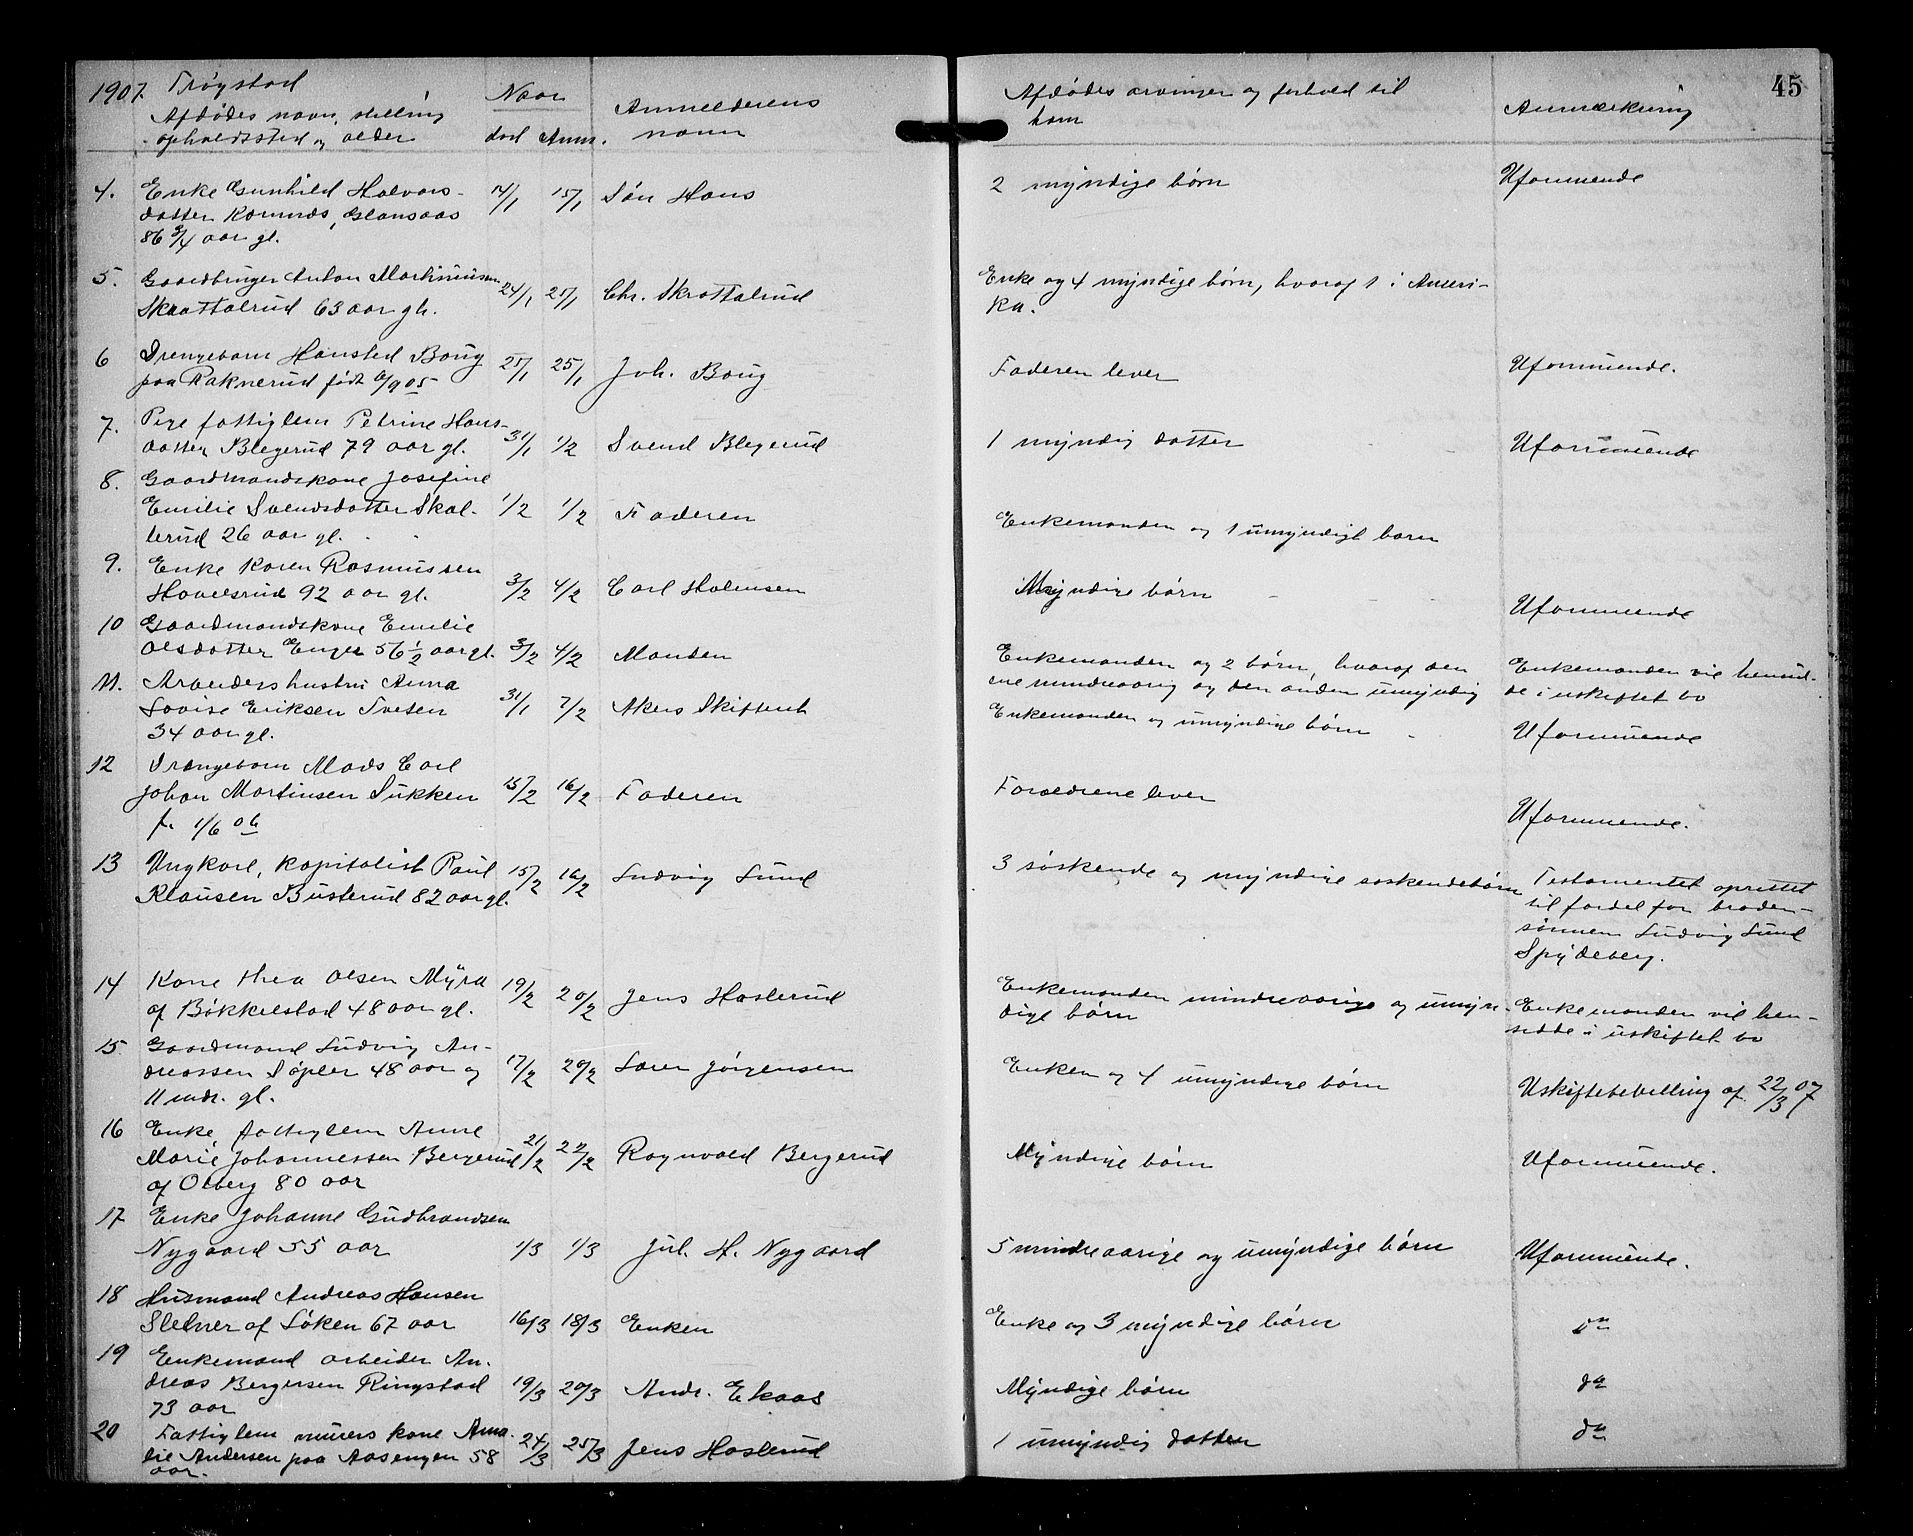 1907. Trøgstad
Afdødes navn, stilling
opholdssted og alder
Naar
død Anm.
Anmelderens
navn
Afdødes arvinger og forhold til
ham
Anmærkning
45
4. Enke Gunhild Halvors-
datter Glansaas
86 3/4 aar gl.
14/1 15/1 Søn Hans
2 myndige børn
Uformuende
5. Gaardbruger Anton Martinusen
Skrattalrud 63 aar gl.
24/1 25/1 Chr. Skrattalrud
Enke og 4 myndige børn, hvoraf 1 i Ameri-
ka.
6 Drengebarn Hansted Boug
paa Raknerud født 6/9 05
25/1 25/1 Joh. Boug
Faderen lever
Uformuende.
7. Pige fattiglem Petrine Hans-
datter Blegerud 79 aar gl.
31/1 1/2 Svend Blegerud
1 myndig datter
Uformuende
8. Gaardmandskone Josefine
Emilie Svendsdatter Skal-
lerud 26 aar gl.
1/2 1/2 Faderen
Enkemanden og 1 umyndigt barn
9. Enke Karen Rasmussen
92 aar gl.
3/2 4/2 Carl Halensen
Myndige børn
Uformuende
10 Gaardmandskone Emilie
Olsdatter Enger 56 1/2 aar gl.
3/2 4/2 Manden
Enkemanden og 2 børn, hvoraf den
ene mindreaarig og den anden umyndig
Enkemanden vil hensid-
de i uskiftet bo
11. Arbeiders hustru Anna
Lovise Eriksen Tveten
34 aar gl.
31/1 7/2 Akers Skifteret
Enkemanden og umyndige børn
Uformuende
12 Drengebarn Mads Carl
Johan Martinsen Sukken
f. 1/6 06
15/2 16/2 Faderen
Forældrene lever
Uformuende.
13 Ungkarl, kapitalist Paul
Klausen Busterud 82 aar gl.
15/2 16/2 Ludvig Lund
3 søskende og myndige søskendebørn
Testamentet oprettet
til fordel for broder-
sønnen Ludvig Lund
Spydeberg.
14 Kone Thea Olsen Myra
af Bøkkelstad 48 aar gl.
19/2 20/2 Jens Haslerud
Enkemanden mindreaarige og umyn-
dige børn
Enkemanden vil hen-
sidde i uskiftet bo
15. Gaardmand Ludvig An-
dreassen Søpler 48 aar og
11 mdr. gl.
17/2 20/2 Søren Jørgensen
Enken og 4 umyndige børn
Uskiftebevilling af 22/3 07
16 Enke, fattiglem Anne
Marie Johannessen Bergerud
af Olberg 80 aar
21/2 22/2 Ragnvald Bergerud
Myndige børn
Uformuende.
17 Enke Johanne Gudbrandsen
Nygaard 55 aar
1/3 1/3 Jul. H. Nygaard
5 mindreaarige og umyndige børn
Uformuende.
18 Husmand Andreas Hansen
Sletner af Løken 67 aar
16/3 18/3 Enken
Enke og 3 myndige børn
do
19 Enkemand arbeider An-
dreas Bergersen Ringstad
73 aar
19/3 20/3 Andr. Ekaas
Myndige børn
do
20 Fattiglem murers kone Ama-
lie Andersen paa Aasengen 58
aar.
24/3 25/3 Jens Haslerud
1 umyndig datter
do